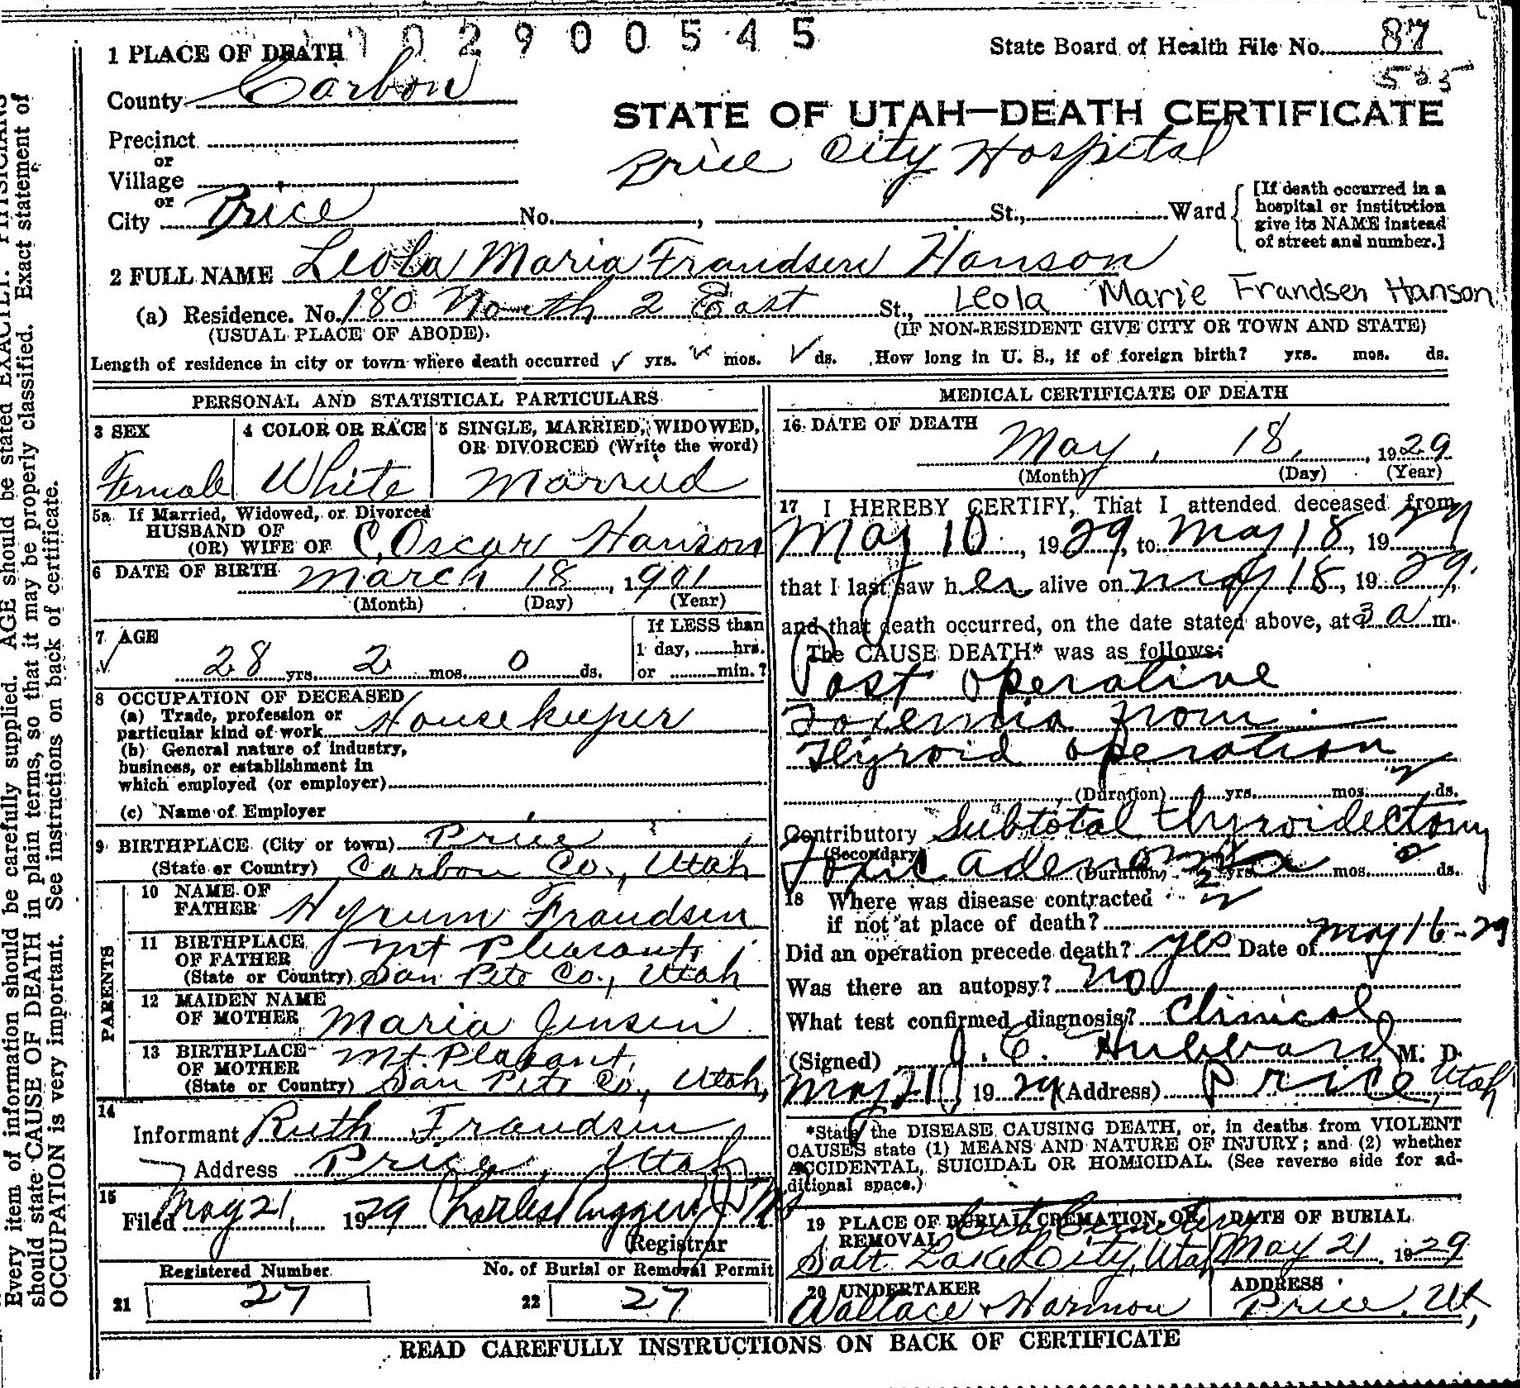 1 PLACE OF DEATH
2900545
State Board of Health File No. 87
County Carbon
STATE OF UTAH—DEATH CERTIFICATE
Precinct
Price City Hospital
or
Village
or
City Price No. , St., Ward
[If death occurred in a
hospital or institution
give its NAME instead
of street and number.]
2 FULL NAME Leola Maria Frandsen Hanson
(a) Residence. No. 180 North 2 East St., Leola Marie Frandsen Hanson
(USUAL PLACE OF ABODE). (IF NON-RESIDENT GIVE CITY OR TOWN AND STATE)
Length of residence in city or town where death occurred ✓ yrs. ✓ mos. ✓ ds. How long in U. S., if of foreign birth? yrs. mos. ds.
PERSONAL AND STATISTICAL PARTICULARS
3 SEX
Female
4 COLOR OR RACE
White
5 SINGLE, MARRIED, WIDOWED,
OR DIVORCED (Write the word)
Married
5a If Married, Widowed, or Divorced
HUSBAND OF
(OR) WIFE OF C. Oscar Hanson
6 DATE OF BIRTH March 18, 1901
(Month) (Day) (Year)
7 AGE
✓ 28 yrs. 2 mos. 0 ds.
If LESS than
1 day, hrs.
or min.?
8 OCCUPATION OF DECEASED
(a) Trade, profession or
particular kind of work Housekeeper
(b) General nature of industry,
business, or establishment in
which employed (or employer)
(c) Name of Employer
9 BIRTHPLACE (City or town) Price
(State or Country) Carbon Co., Utah
PARENTS
10 NAME OF
FATHER Hyrum Frandsen
11 BIRTHPLACE
OF FATHER Mt Pleasant,
(State or Country) San Pete Co., Utah
12 MAIDEN NAME
OF MOTHER Maria Jensen
13 BIRTHPLACE
OF MOTHER Mt. Pleasant,
(State or Country) San Pete Co., Utah,
14
Informant Ruth Frandsen
Address Price, Utah
15
Filed May 21, 1929 Charles Ruggeri
Registrar
Registered Number
21 27
No. of Burial or Removal Permit
22 27
MEDICAL CERTIFICATE OF DEATH
16 DATE OF DEATH
May, 18, 1929
(Month) (Day) (Year)
17 I HEREBY CERTIFY, That I attended deceased from
May 10, 1929, to May 18, 1929
that I last saw her alive on May 18, 1929,
and that death occurred, on the date stated above, at 3 a m.
The CAUSE DEATH* was as follows:
Post Operative
Toxemia from
Thyroid operation
(Duration) yrs. mos. 2 ds.
Contributory Subtotal thyroidectomy
(Secondary) Toxic Adenoma
(Duration) yrs. mos. ds.
18 Where was disease contracted
if not at place of death?
Did an operation precede death? yes Date of May 16-29
Was there an autopsy? No
What test confirmed diagnosis? Clinical
(Signed) J. E. Hubbard, M. D.
May 21, 1929 (Address) Price, Utah
*State the DISEASE CAUSING DEATH, or, in deaths from VIOLENT
CAUSES state (1) MEANS AND NATURE OF INJURY; and (2) whether
ACCIDENTAL, SUICIDAL OR HOMICIDAL. (See reverse side for ad-
ditional space.)
19 PLACE OF BURIAL, CREMATION, OR
REMOVAL City Cemetery
Salt Lake City, Utah
DATE OF BURIAL
May 21, 1929
20 UNDERTAKER
Wallace & Harmon
ADDRESS
Price, Ut,
READ CAREFULLY INSTRUCTIONS ON BACK OF CERTIFICATE
Every item of information should be carefully supplied. AGE should be stated EXACTLY. PHYSICIANS
should state CAUSE OF DEATH in plain terms, so that it may be properly classified. Exact statement of
OCCUPATION is very important. See instructions on back of certificate.